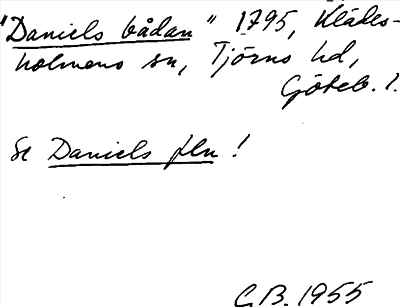 "Daniels bådan" 1795, Klädes-
holmens sn, Tjörns hd,
Göteb. l.
Se Daniels fln!
C.B. 1955